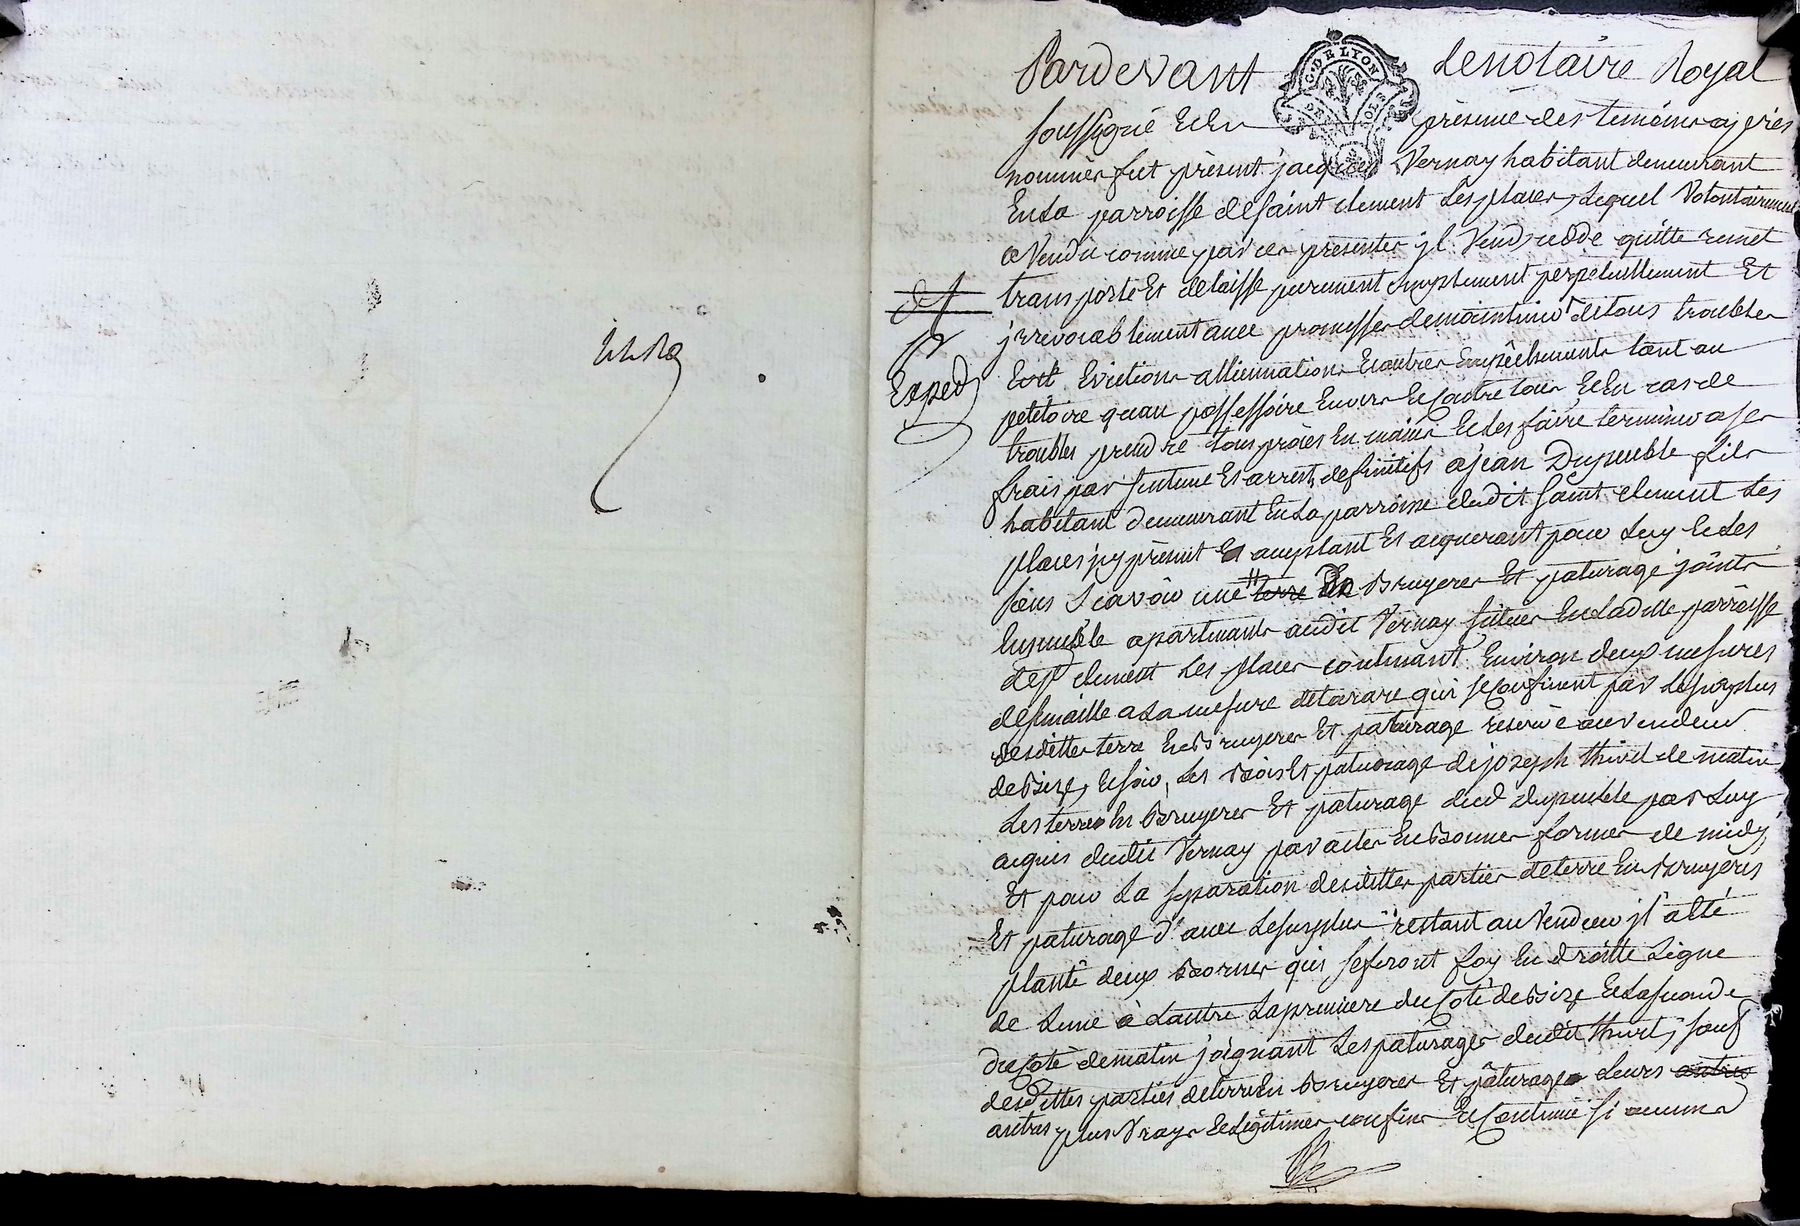 Pardevant le notaire Royal
G. DE LYON
DE
SOLS
soussigné Et En présence des temoins cy après
nommés fut présent jacques Vernay habitant demeurant
En La parroisse de saint clement Les places, Lequel Volontairement
a Vendu comme par ces presentes jl Vend, cede quitte remet
transporte Et delaisse purement simplement perpetuellement Et
jrrevocablement avec promesse de maintenir de tous troubles
Exped
Evictions allienations Et autres Empêchements tant au
petitoire quau possessoire Envers Et Contre tous Et En cas de
troubles prendre tous procès En mains Et les faire terminer a ses
frais par sentence Et arrest definitifs a jean Dupeuble fils
habitant demeurant En La parroisse dudit saint clement Les
places jcy présent Et acceptant Et acquerant pour Luy Et Les
siens Scavoir une terre En Bruyeres Et paturage joints
Ensemble apartenants audit Vernay situés En Ladite parroisse
de st clement Les places contenant Environ deux mesures
de semaille a La mesure de tarare qui se Confinent par Le surplus
desdittes terre En Bruyeres Et paturage reservé au vendeur
de Bize, Et soir, Les Bois Et paturage de joseph thivel de matin,
Les terres En Bruyeres Et paturage dud dupeuble par Luy
acquis dudit Vernay par actes En Bonnes formes de midy,
Et pour La separation desdittes parties de terre En Bruyeres
Et paturage d'avec Le surplus restant au Vendeur jl a Eté
planté deux Bornes qui se feront foy En droitte Ligne
de Lune à Lautre La premiere du Coté de Bize Et La seconde
du Coté de matin joignant Les paturages dudit thivel, sauf
desdittes parties de terre En Bruyeres Et pâturages Leurs autres
autres plus Vrays Et Légitimes confins Et Contenue si aucuns